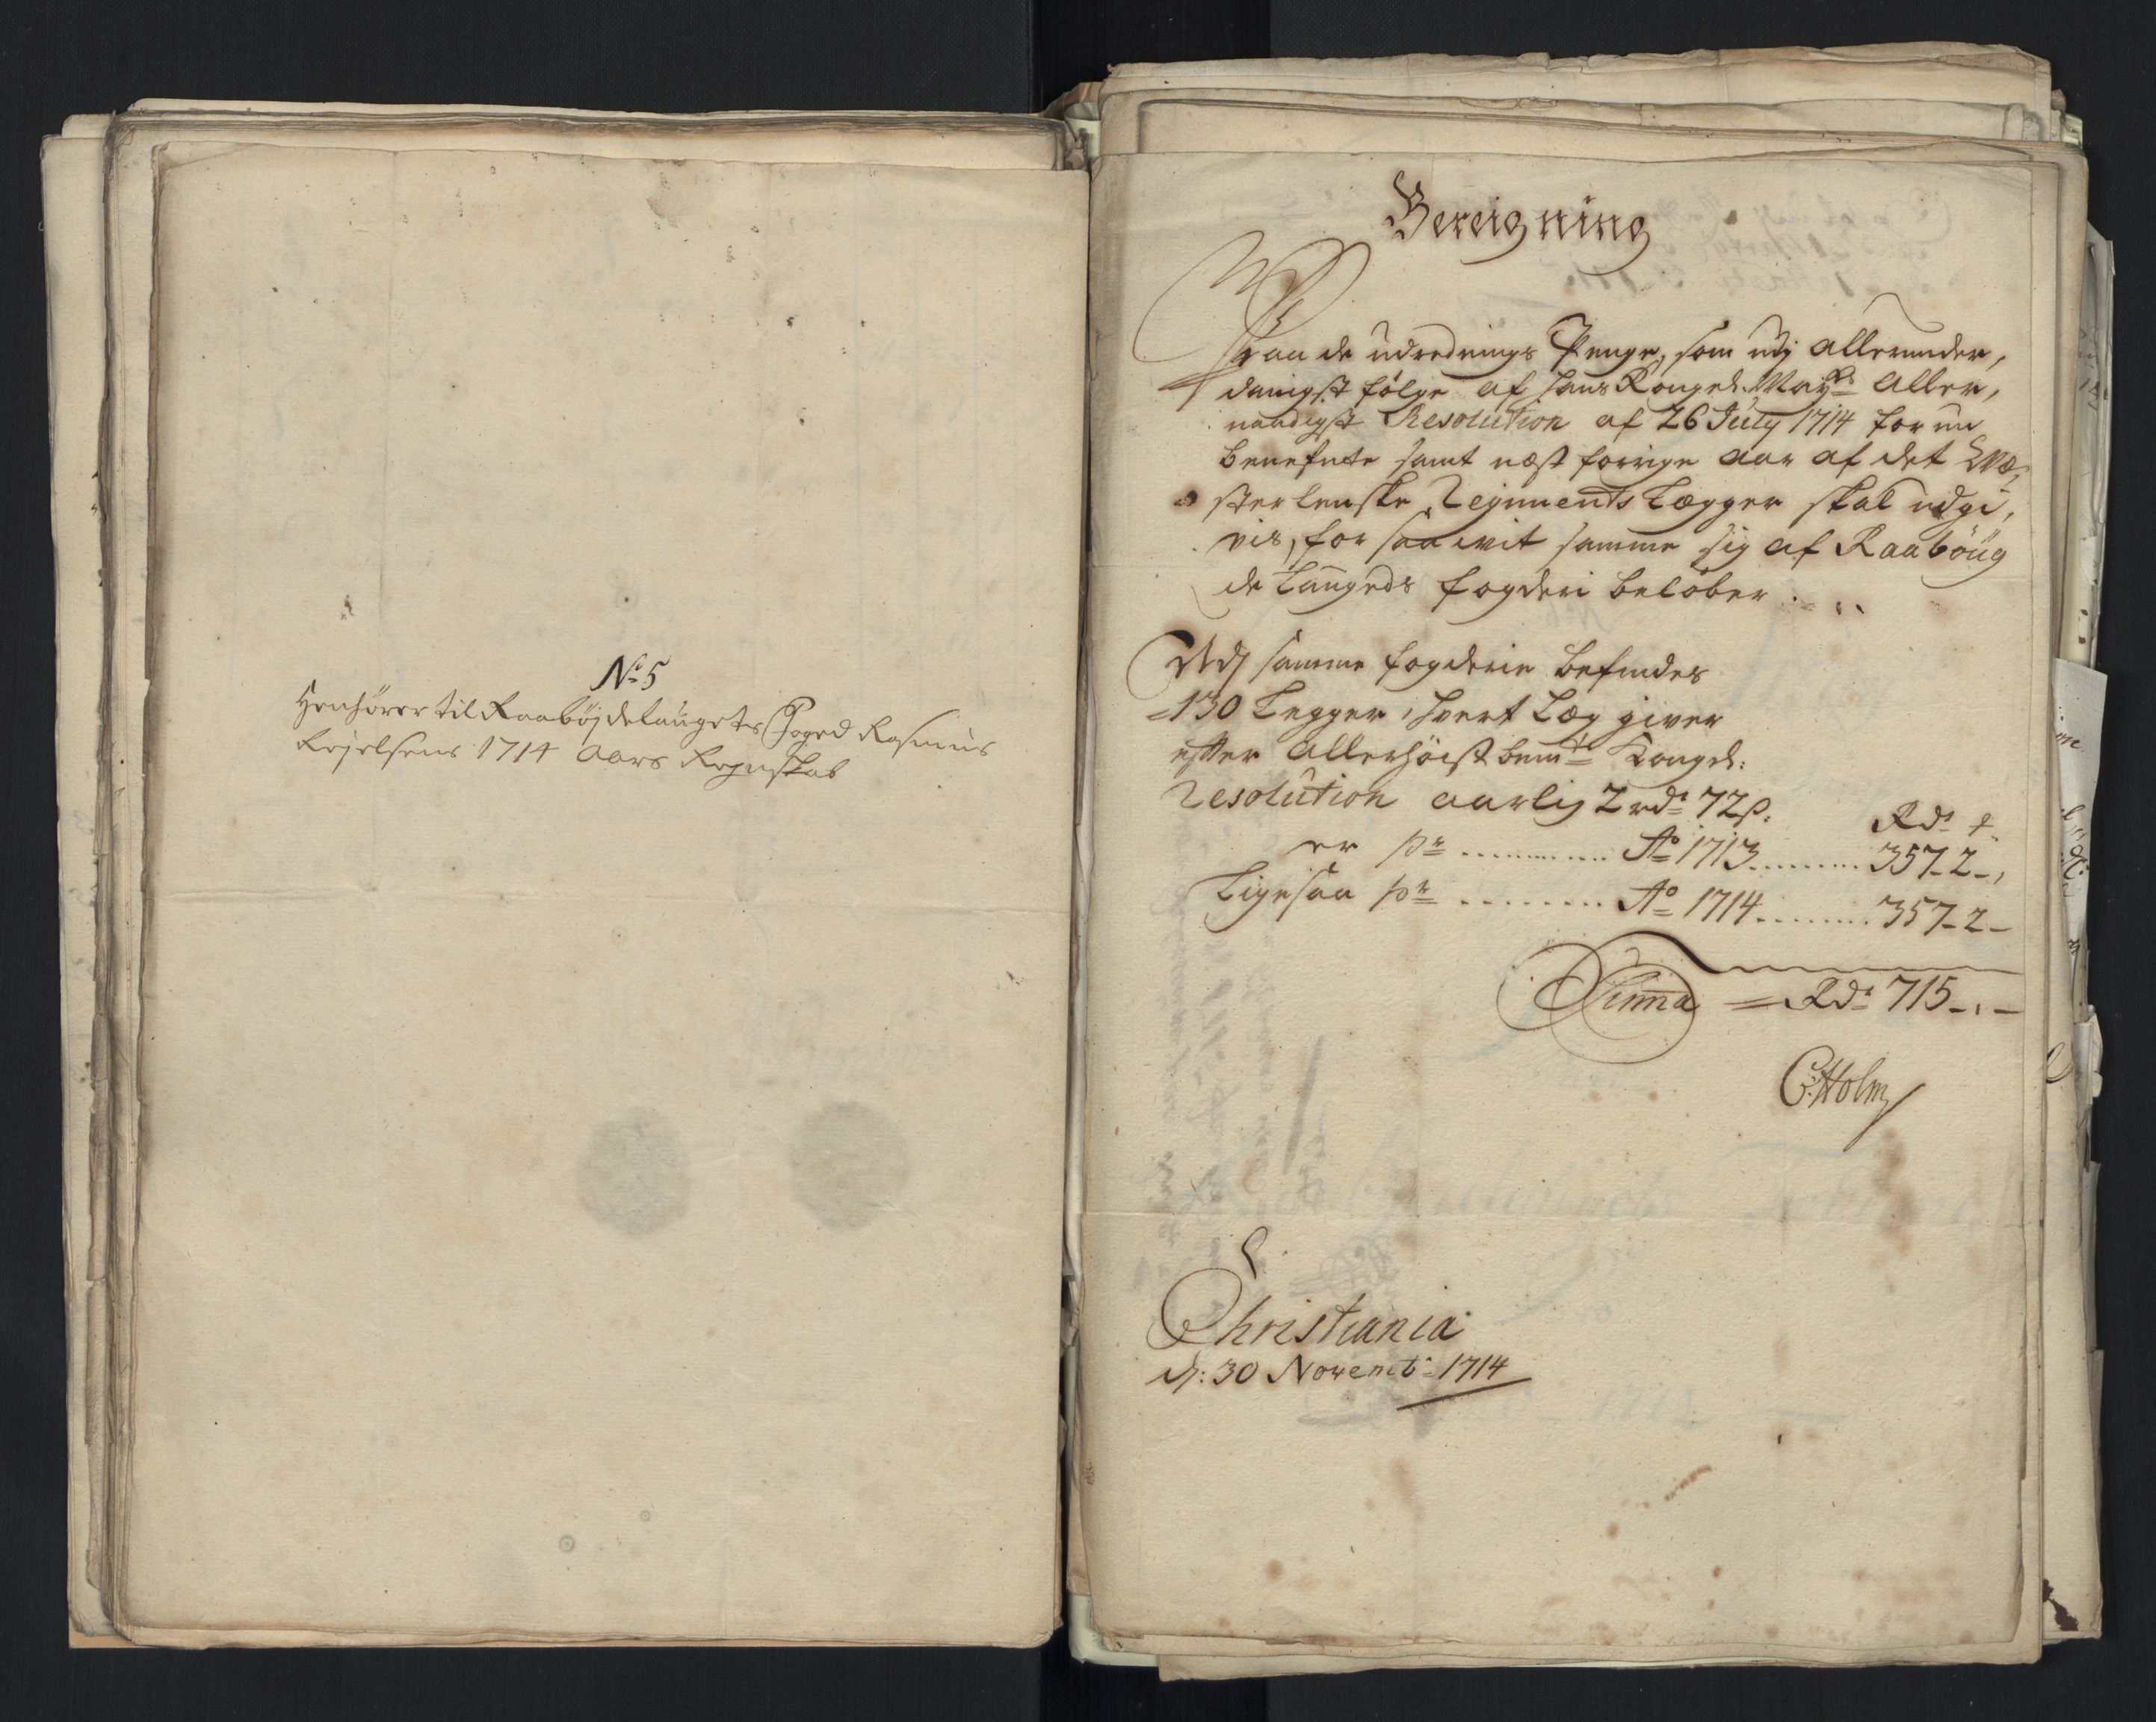 No 5
Henhörer til Raabøjdelaugets Foged Rasmus
Kejelsens 1714 Aars Regnskab
Bereigning
Paa de udrednings Penge, som udj allerunder,
danigst følge af Hans Kongel. Mayts Aller,
naadigst Resolution af 26 Julÿ 1714 for nu
benefnte samt næst forrige aar af det Wæ,
sterlenske Regiments Lægger skal udgi,
vis, for saa wit samme sig af Raabøüg
de Laugeds fogderi beløber.
Udj samme fogderie befindes
130 Legger, hvert Læg giver
efter Allerhöist bemte Kongel:
Resolution aarlig 2 rdr 72 s.
Rdr
er pr ............ Ao 1713 ......... 357-2-
Ligesaa pr ......... Ao 1714 ......... 357-2-
Summa = Rdr 715-,-
C: Holm
Christiania
d: 30 Novemb: 1714